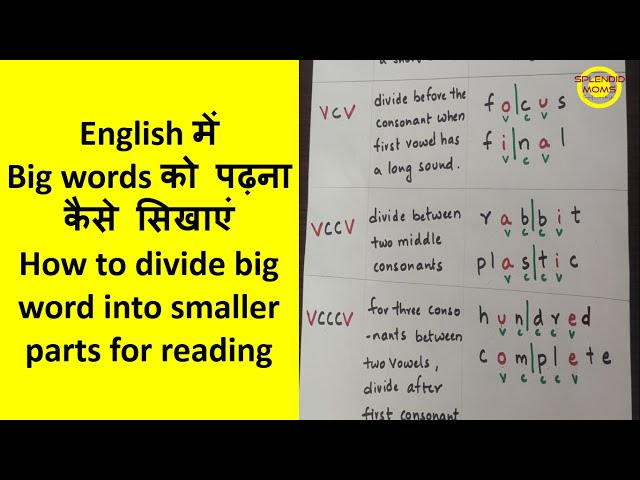 English में
Big words को पढ़ना
कैसे सिखाएं
How to divide big
word into smaller
parts for reading
SPLENDID
MOMS
a short
VCV
divide before the
consonant when
first vowel has
a long sound.
fo|cus
v c v
fi|nal
v c v
VCCV
divide between
two middle
consonants
rab|bit
v c c v
plas|tic
v c c v
VCCCV
for three conso
-nants between
two vowels,
divide after
first consonant
hun|dred
v c c c v
com|plete
v c c c v